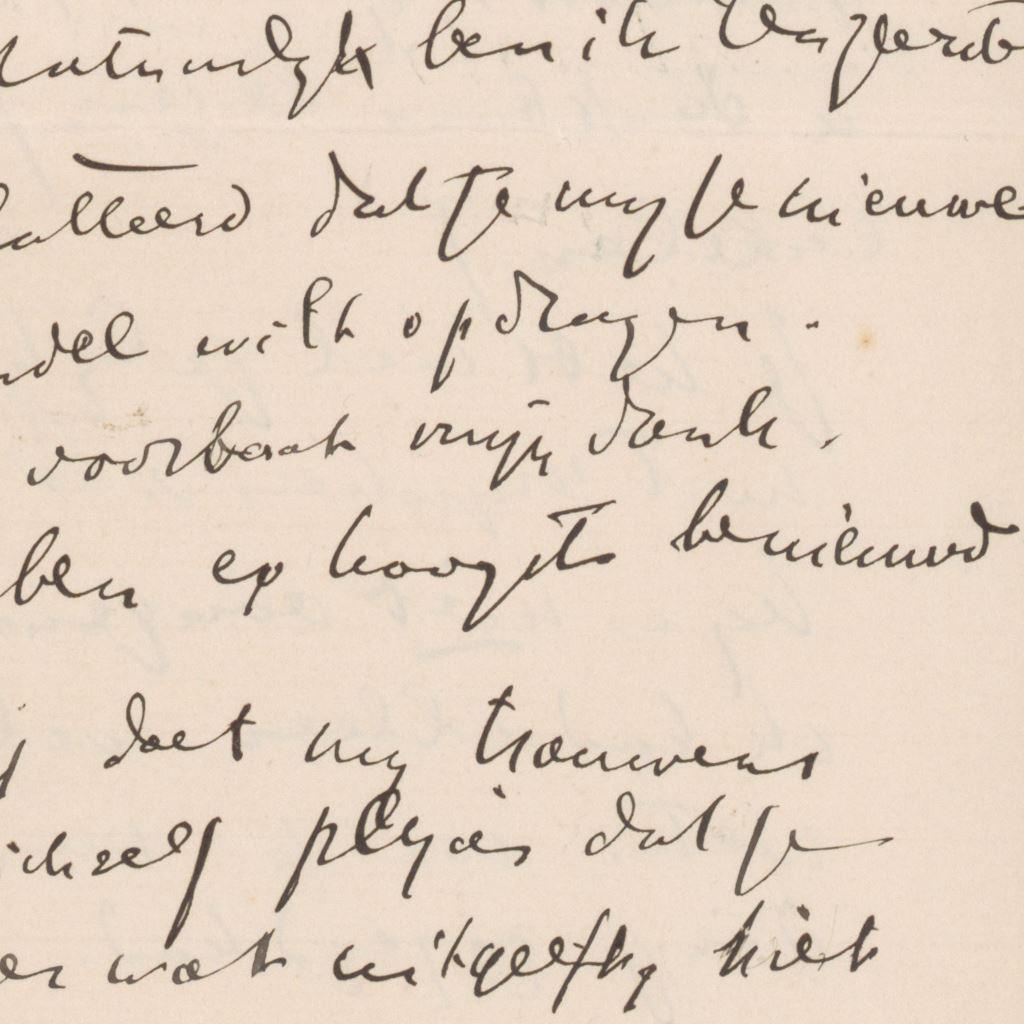 Natuurlijk ben ik
flatteerd dat je mij je nieuwe
ndel wilt opdragen.
voorbaat mijn dank.
ben op hoogst benieuwd
doet mij trouwens
ichzelf plezier dat je
er wat uitgeeft, hield